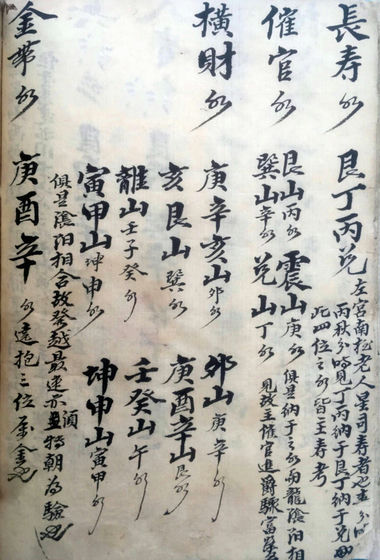 長寿水 艮丁丙兑
左宫南极老人星司寿者也主
丙秋分時見丁丙納于艮丁納于兑
此四位之水皆主寿考
催官水
艮山丙水 震山庚水 俱是纳于之水而龍陰阳相
巽山辛水 兑山丁水 主催官進爵驟富
横財水
庚辛亥山卯水 卯山庚辛水
亥艮山巽水 庚酉辛山艮水
離山壬子癸水 壬癸山午水
寅甲山坤申水 坤申山寅甲水
俱是陰阳相合致發越最速亦須特朝為驗也
金帯水 庚酉辛水遶抱三位